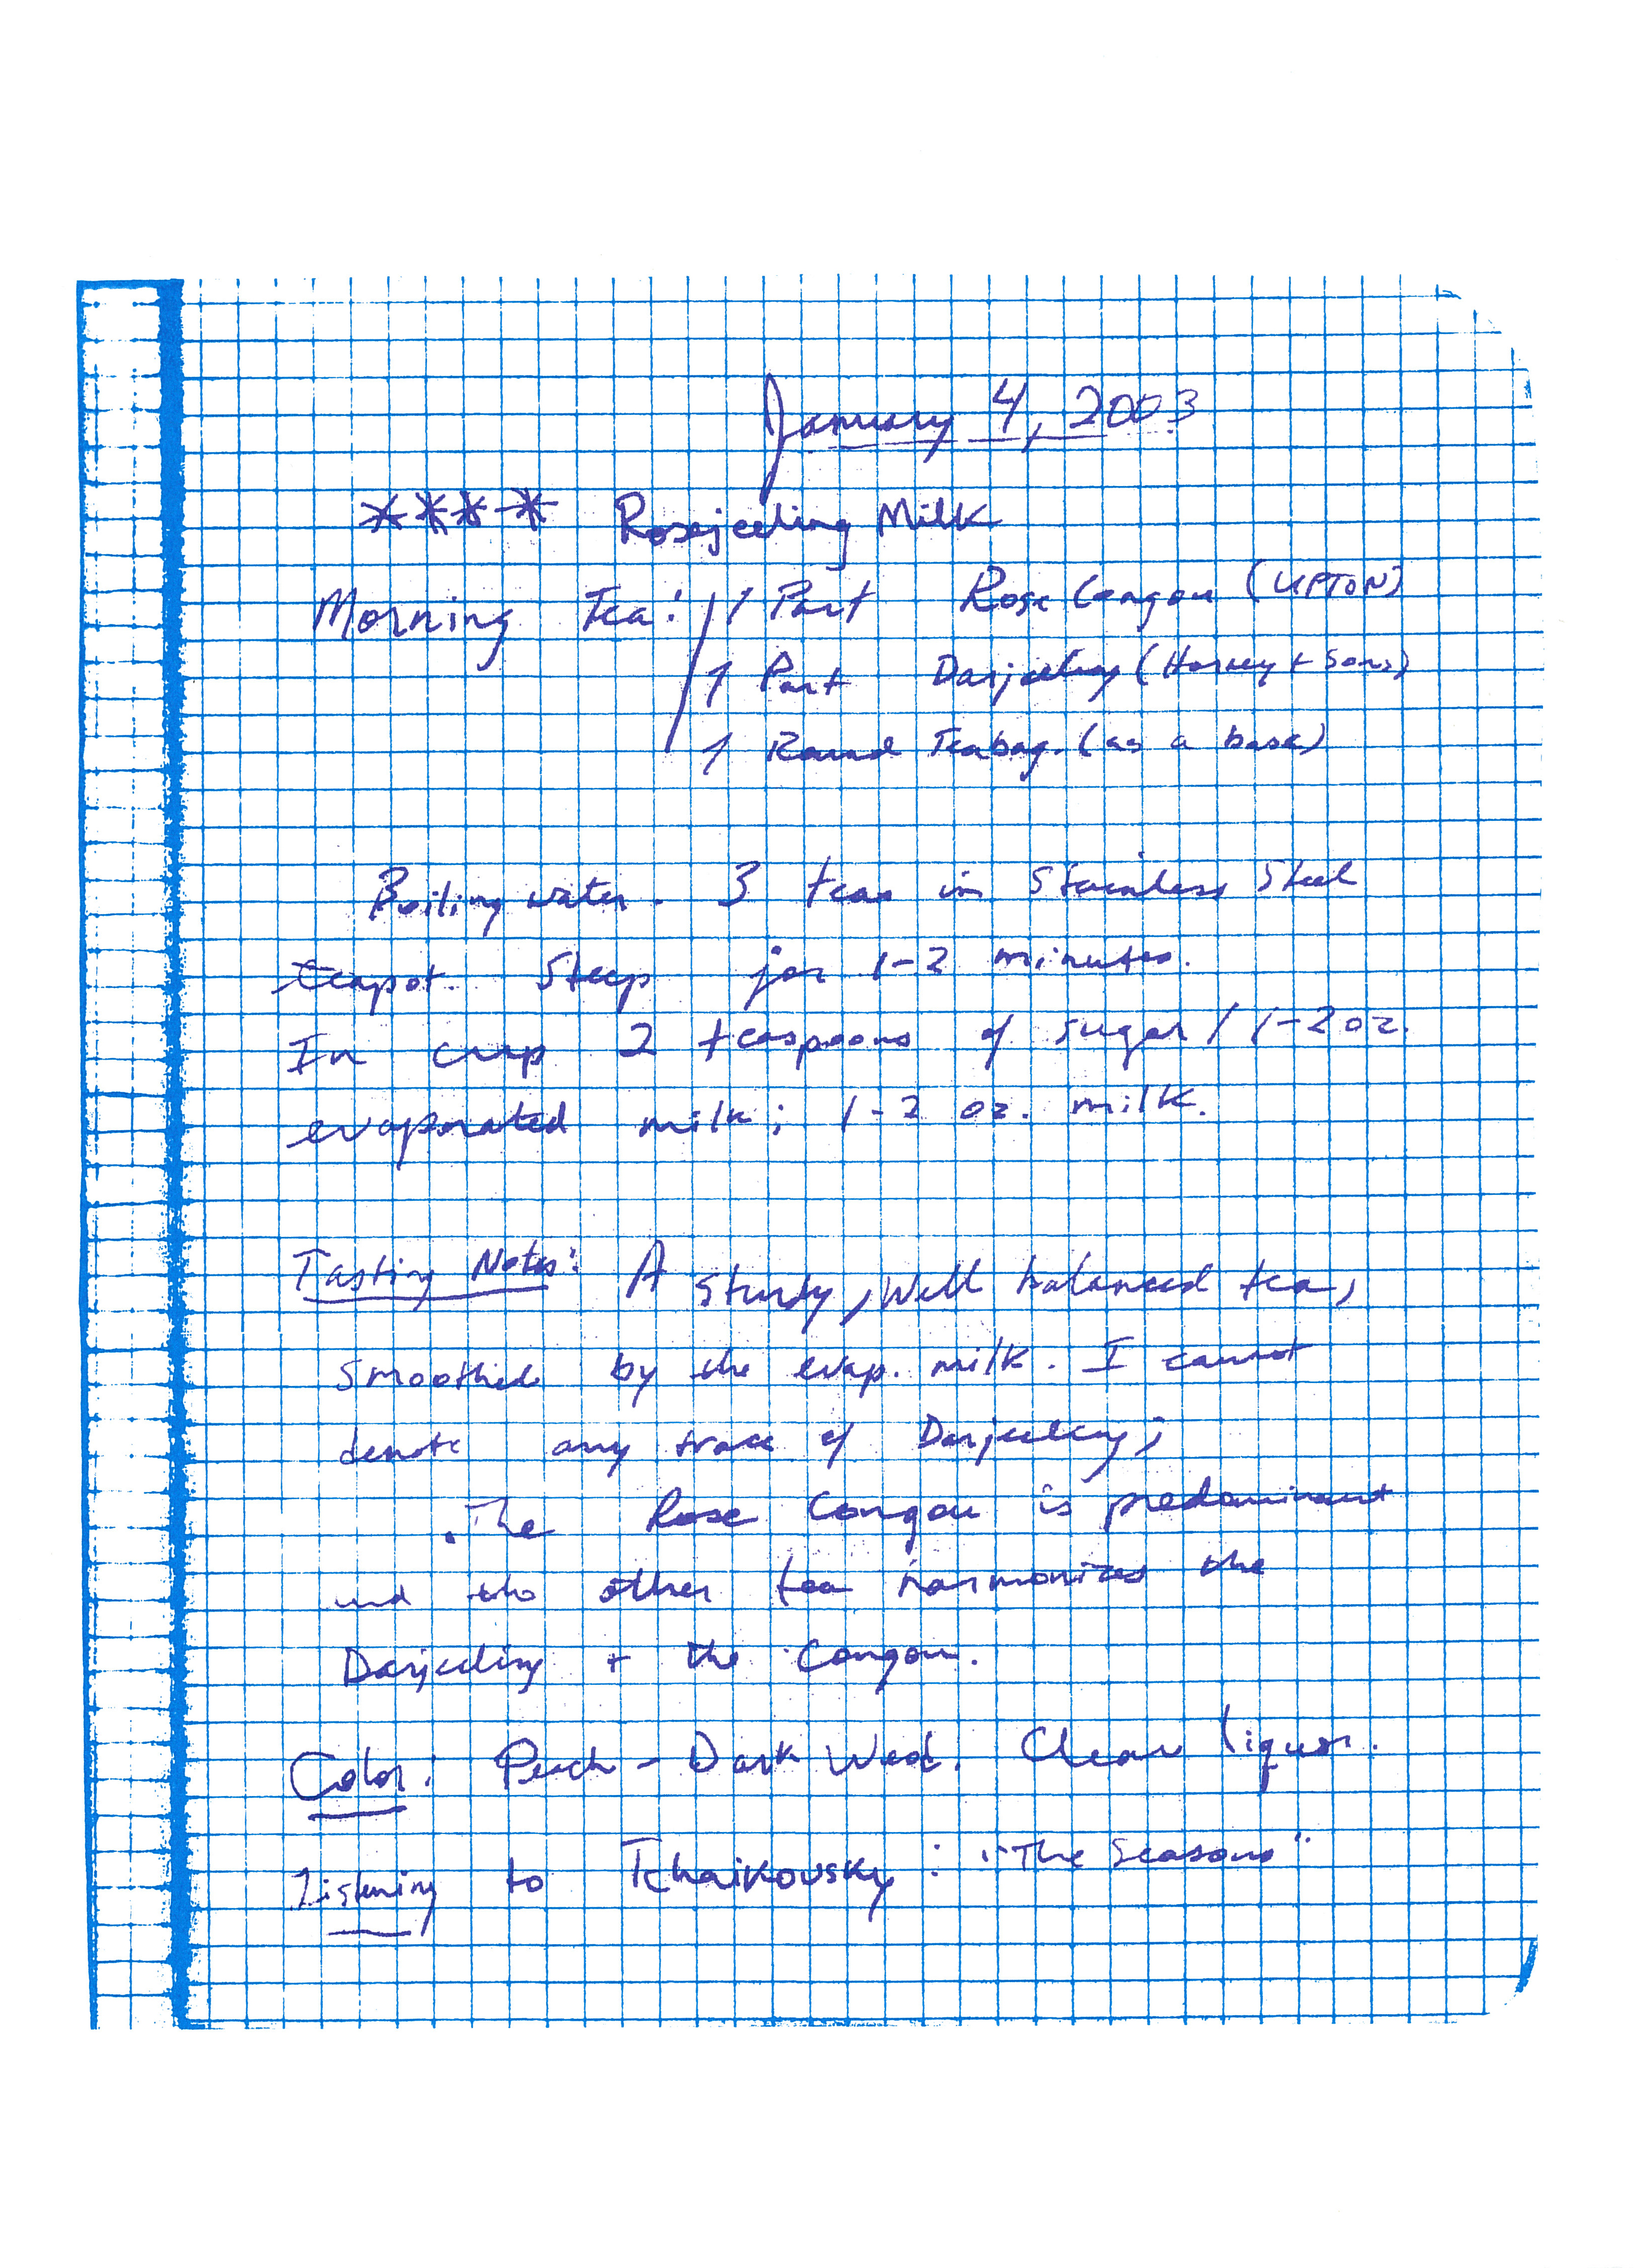 January 4, 2003
**** Rosejeeling Milk
Morning Tea: / 1 Part Rose Congou (UPTON)
1 Part Darjeeling (Harney + Sons)
1 Round Teabag. (as a base)
Boiling water. 3 teas in Stainless Steel
teapot. Steep for 1-2 minutes.
In cup 2 teaspoons of sugar / 1-2 oz.
evaporated milk; 1-2 oz. milk.
Tasting Notes: A sturdy, well balanced tea,
smoothed by the evap. milk. I cannot
denote any trace of Darjeeling;
.The Rose Congou is predominant
and the other tea harmonizes the
Darjeeling + the Congou.
Color: Peach - Dark Wood. Clear liquor.
Listening to Tchaikovsky: "The Seasons"